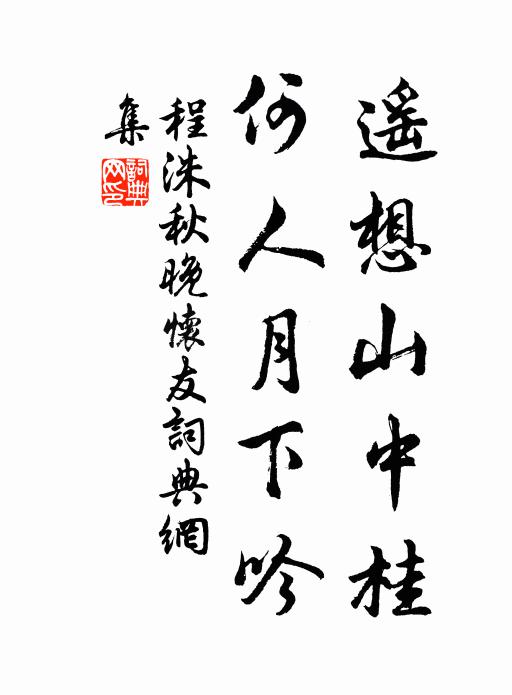 遥想山中桂
何人月下吟
程洙秋晚懷友詞典網
集
詞典
网印